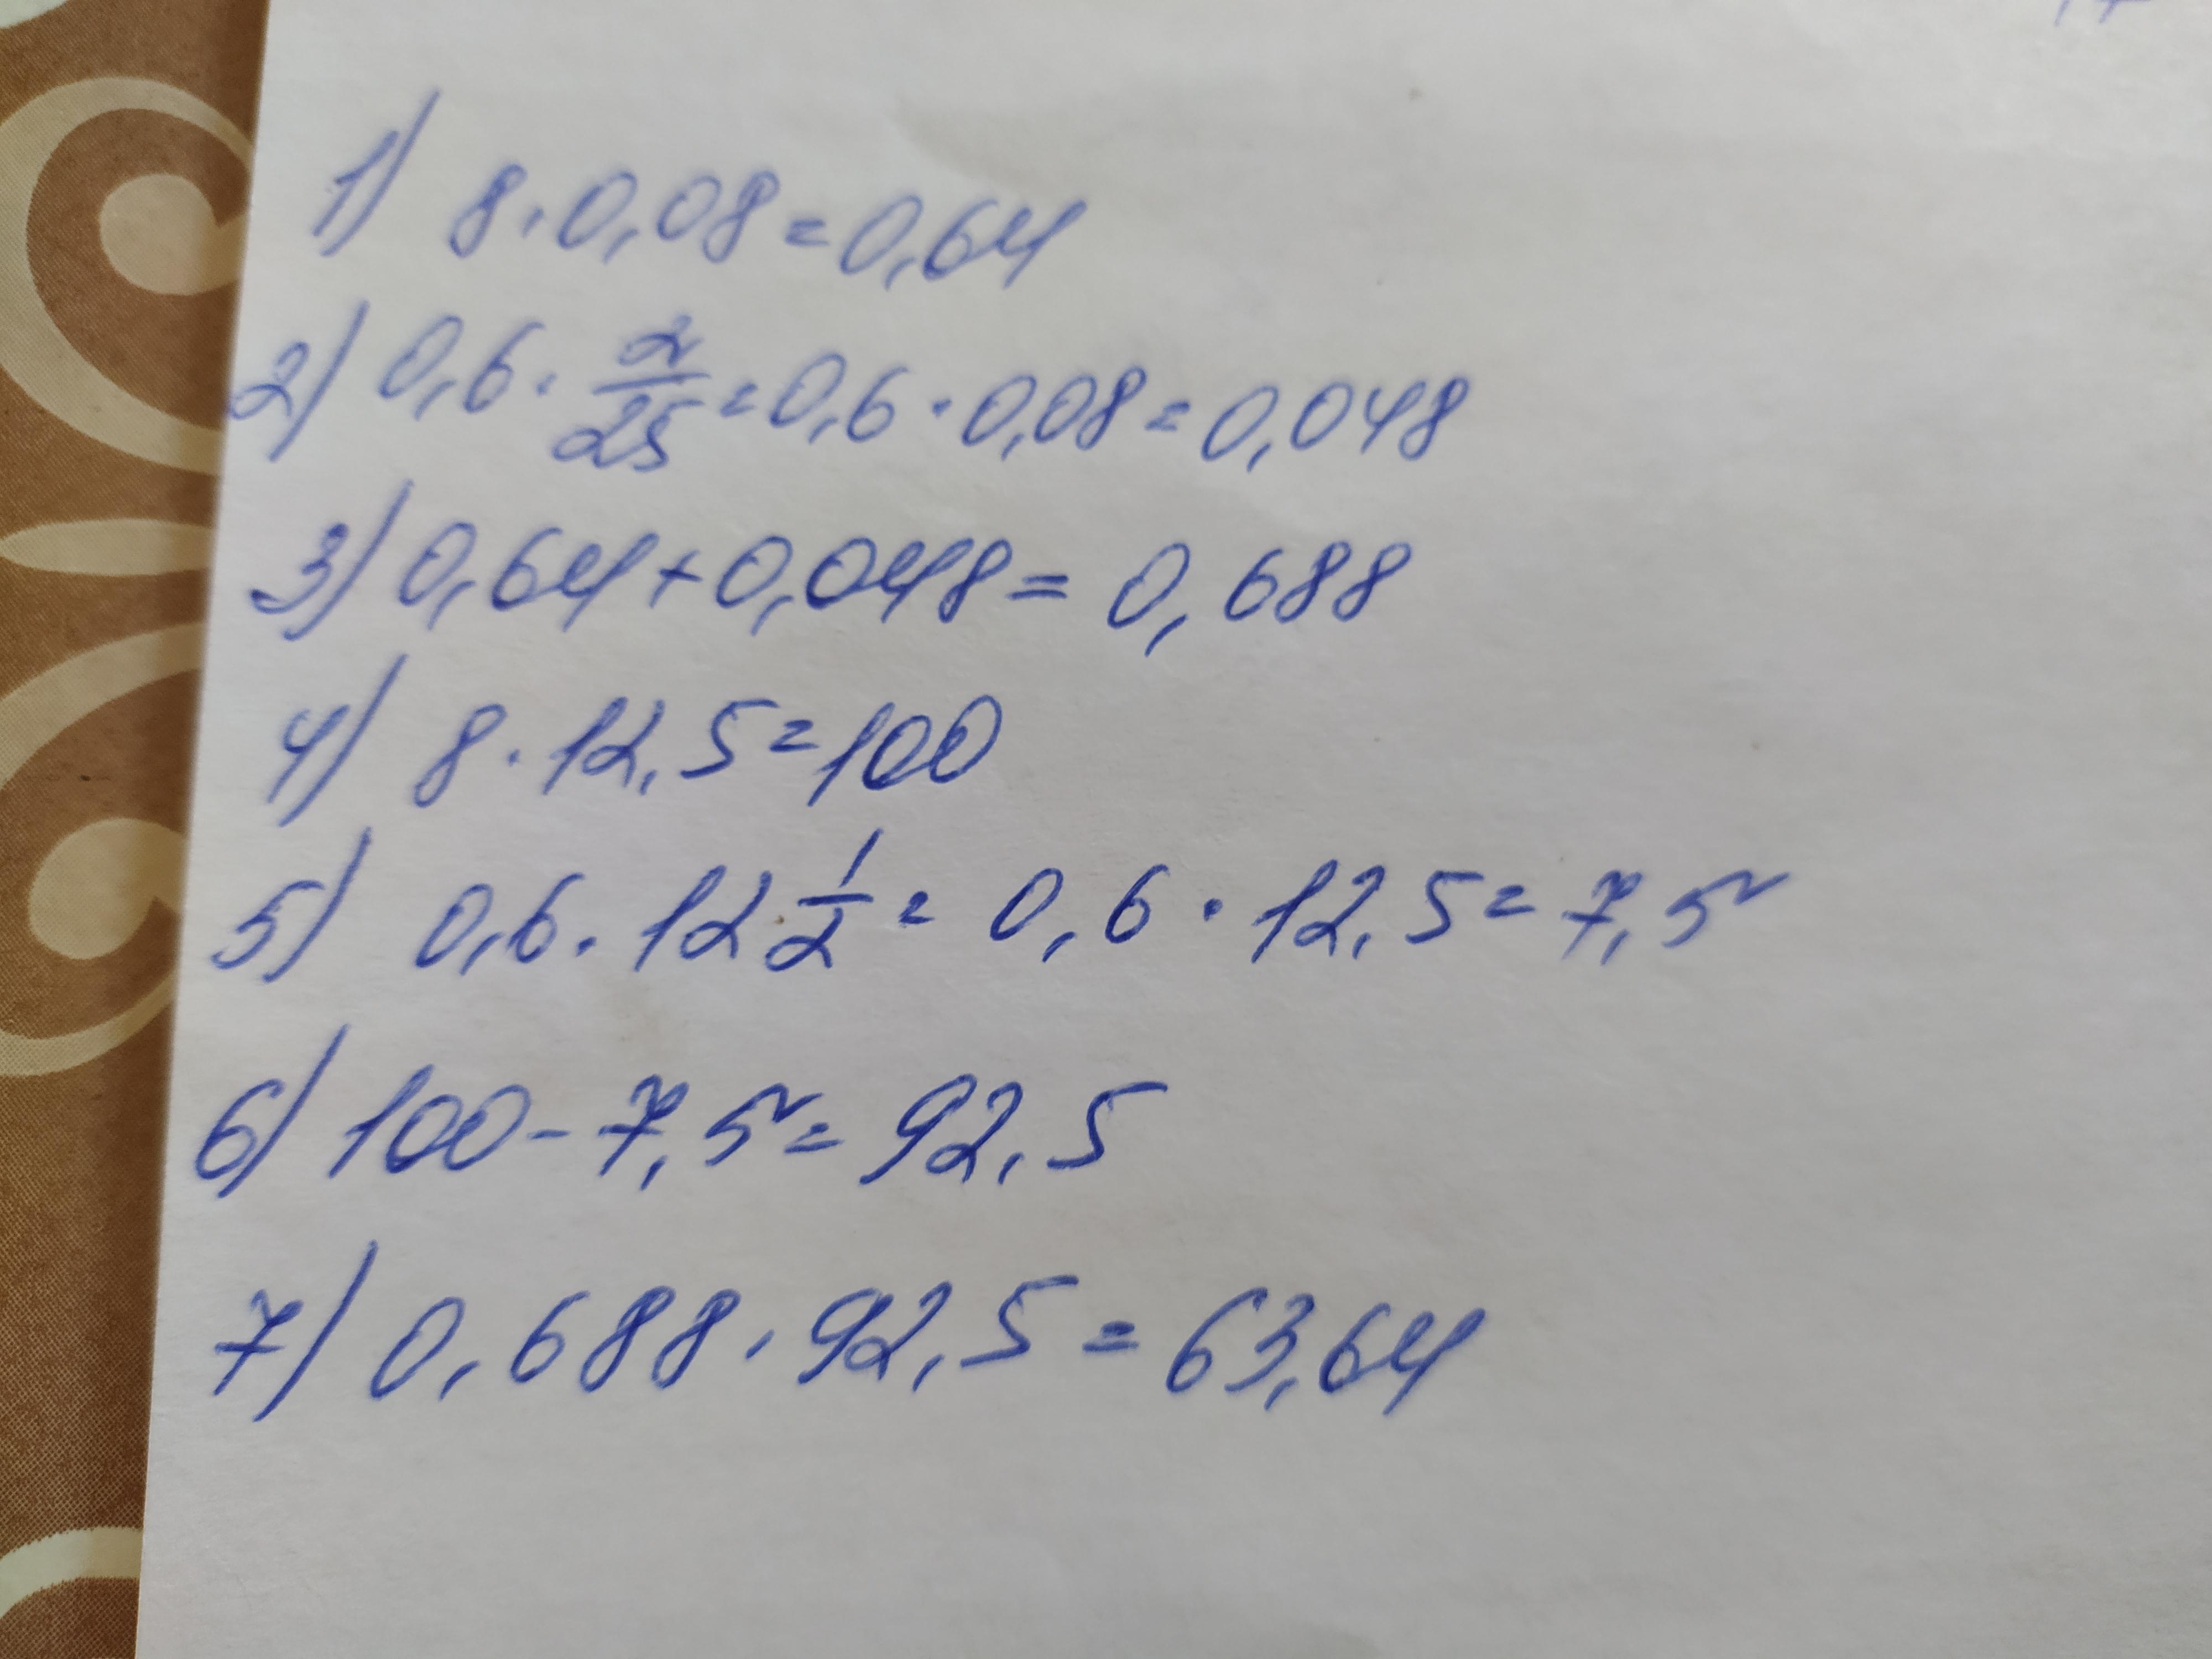 1) 8·0,08=0,64
2) 0,6·2/25=0,6·0,08=0,048
3) 0,64+0,048=0,688
4) 8·12,5=100
5) 0,6·12 1/2=0,6·12,5=7,5
6) 100-7,5=92,5
7) 0,688·92,5=63,64